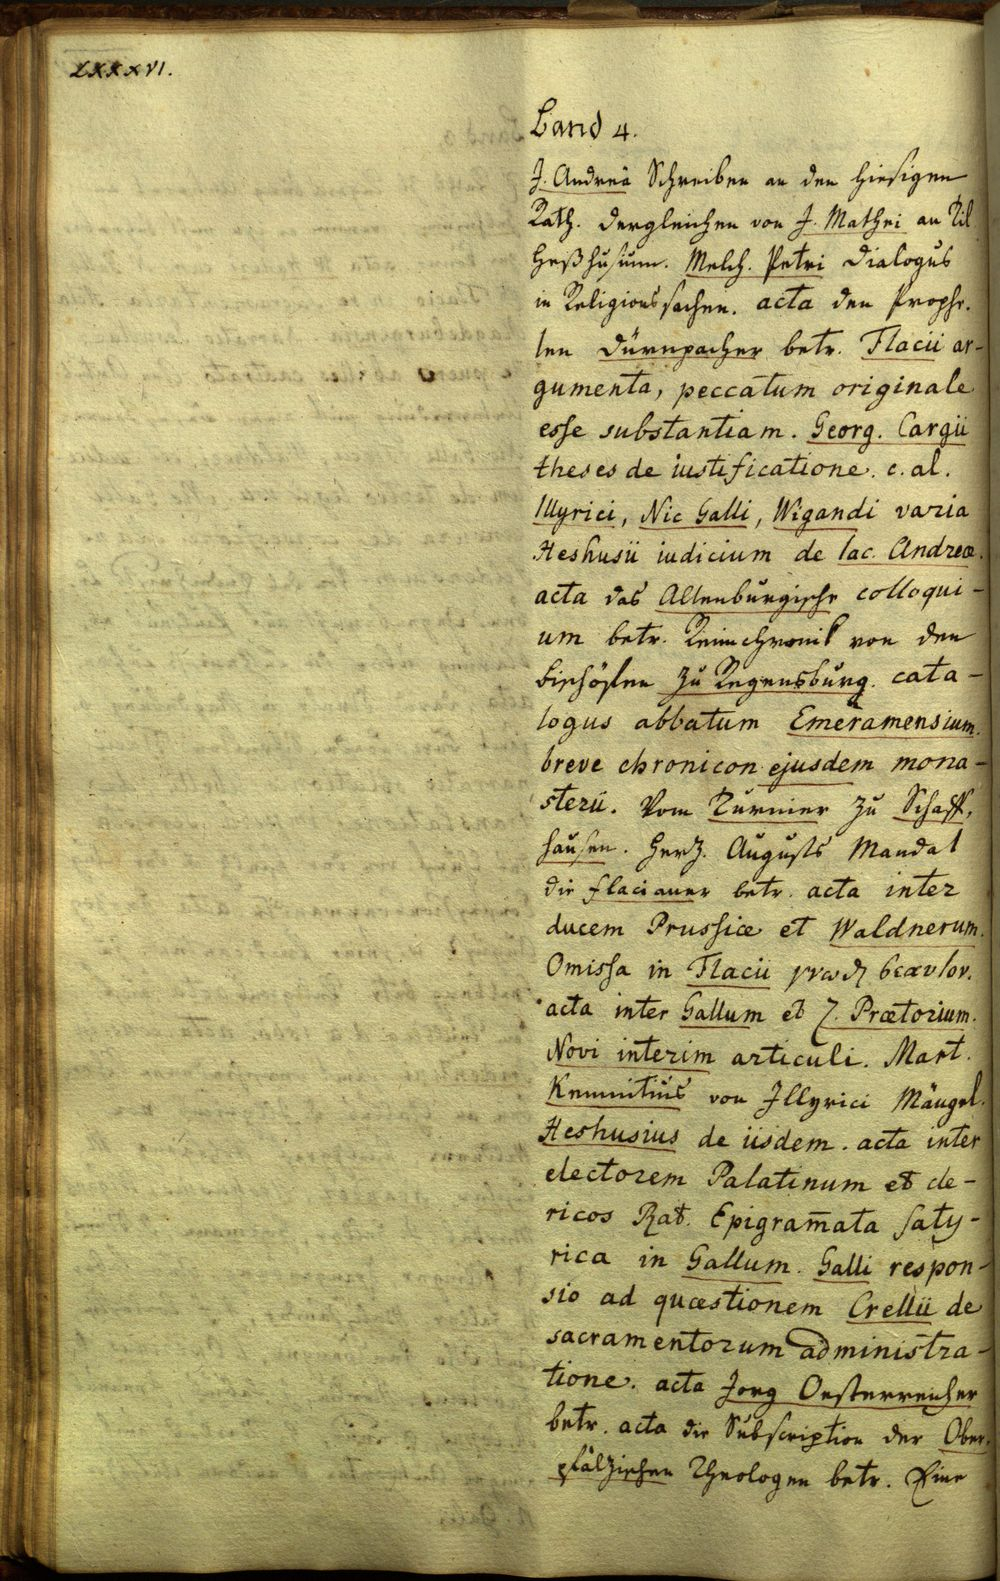 LXXXVI.
Band 4.
J. Andreä Schreiben an den hiesigen
Rath. dergleichen von J. Mathei an Til
Heßhusium. Melch. Petri Dialogus
in Religionssachen. acta den Prophe-
ten Dürnpacher betr. Flacii ar-
gumenta, peccatum originale
esse substantiam. Georg. Cargii
theses de iustificatione. c. al.
Illyrici, Nic Galli, Wigandi varia
Heshusii iudicium de Iac. Andreæ.
acta das Altenburgische colloqui-
um betr. Reimchronik von den
Bischöfen zu Regensburg. cata-
logus abbatum Emeramensium.
breve chronicon ejusdem mona-
sterii. Vom Turnier zu Schaff,
hausen. Herz. Augusts Mandat
die Flacianer betr. acta inter
ducem Prussiæ et Waldnerum.
Omissa in Flacii
acta inter Gallum et Z. Prætorium.
Novi interim articuli. Mart.
Kemnitius von Illyrici Mängel.
Heshusius de iisdem. acta inter
electorem Palatinum et cle-
ricos Rat. Epigram̄ata saty-
rica in Gallum. Galli respon-
sio ad quæstionem Crellii de
sacramentorum administra-
tione. acta Jorg Oesterreicher
betr. acta die Subscription der Ober-
pfälzischen Theologen betr. Eine